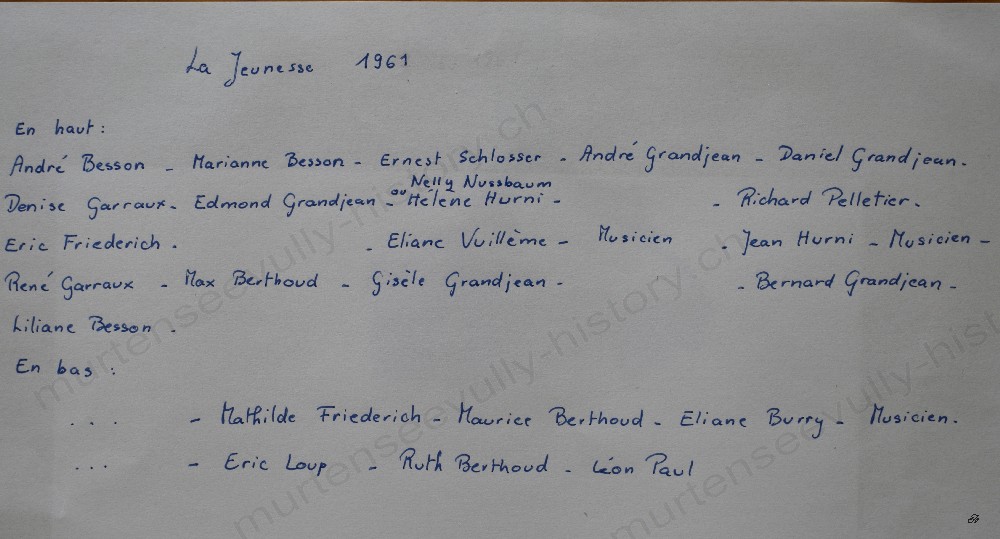 La Jeunesse 1961
En haut :
André Besson - Marianne Besson - Ernest Schlosser - André Grandjean - Daniel Grandjean.
Nelly Nussbaum
Denise Garraux - Edmond Grandjean - ou Hélène Hurni - - Richard Pelletier.
Eric Friederich . - Eliane Vuillème - Musicien - Jean Hurni - Musicien -
René Garraux - Max Berthoud - Gisèle Grandjean - - Bernard Grandjean -
Liliane Besson -
En bas :
. . . - Mathilde Friederich - Maurice Berthoud - Eliane Burry - Musicien.
. . . - Eric Loup - Ruth Berthoud - Léon Paul
murtenseevully-history.ch
murtenseevully-history.ch
murtenseevully-history.ch